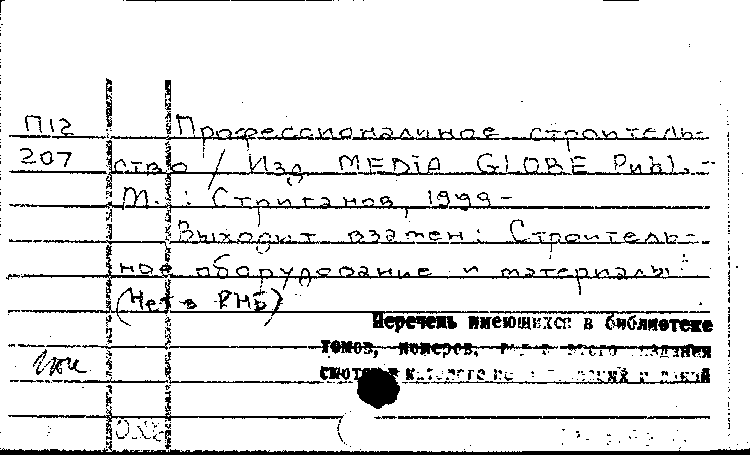 П12
207
Профессиональное строитель-
ство / Изд. MEDIA GLOBE Publ. -
М. : Стриганов, 1999 -
Выходит взамен: Строитель-
ное оборудование и материалы
(Нет в РНБ)
Перечень имеющихся в библиотеке
томов, номеров, этого издания
смотри в каталоге